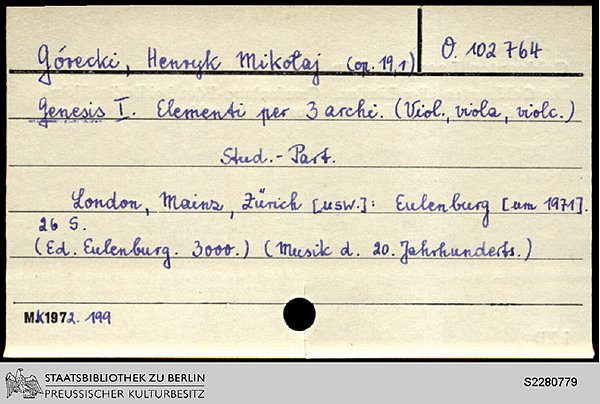 Górecki, Henryk Mikołaj (op. 19,1) O. 102 764
Genesis I. Elementi per 3 archi. (Viol., viola, violc.)
Stud.-Part.
London, Mainz, Zürich [usw.]: Eulenburg [um 1971].
26 S.
(Ed. Eulenburg. 3000.) (Musik d. 20. Jahrhunderts.)
1972. 199
STAATSBIBLIOTHEK ZU BERLIN
PREUSSISCHER KULTURBESITZ
S2280779